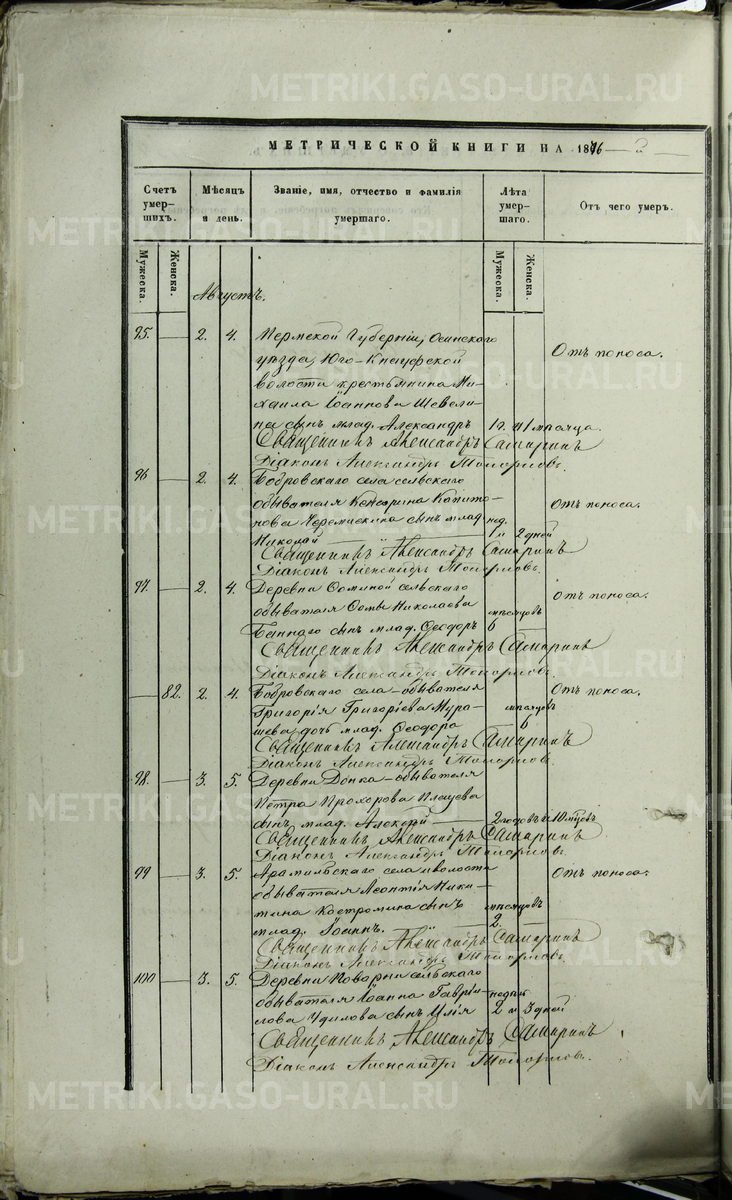 METRIKI.GASO-URAL.RU
МЕТРИЧЕСКОЙ КНИГИ НА 1876 й
Счетъ умершихъ.
Мѣсяцъ и день.
Званіе, имя, отчество и фамилія умершаго.
Лѣта умершаго.
Отъ чего умеръ.
Мужеска.
Женска.
Мужеска.
Женска.
Августъ.
95. 2. 4. Пермской Губерніи, Осинскаго
уѣзда, Юго-Кнауфской
Отъ поноса.
волости крестьянина Ми-
хаила Іоаннова Шевели-
на сынъ млад. Александръ 1 г. и 1 мѣсяца.
Священникъ Александръ Самаринъ
Діаконъ Александръ Топорковъ.
96 2. 4. Бобровскаго села сельскаго
обывателя Капито-
Отъ поноса.
нова сынъ млад. нед.
Николай 1 и 2 дней
Священникъ Александръ Самаринъ
Діаконъ Александръ Топорковъ.
97. 2. 4. Деревни Ѳоминой сельскаго
Отъ поноса.
обывателя Ѳомы Николаева мѣсяцовъ
Баннаго сынъ млад. Ѳеодоръ 6
Священникъ Александръ Самаринъ
Діаконъ Александръ Топорковъ.
82. 2. 4. Бобровскаго села обывателя
Отъ поноса.
Григорія Григоріева Мура- мѣсяцовъ
шева дочь млад. Ѳеодора 6
Священникъ Александръ Самаринъ
Діаконъ Александръ Топорковъ.
98. 3. 5. Деревни обывателя
Петра Прохорова Плещева
сынъ млад. Алексѣй 2 годовъ и 10 мѣсцовъ
Священникъ Александръ Самаринъ
Діаконъ Александръ Топорковъ.
99 3. 5. Арамильскаго села и волости
Отъ поноса.
обывателя Леонтія Ники-
тина Костромина сынъ мѣсяцовъ
млад. Іоаннъ. 2.
Священникъ Александръ Самаринъ
Діаконъ Александръ Топорковъ.
100 3. 5. Деревни Поварни сельскаго
обывателя Іоанна Гаврі- недѣль
лова Удилова сынъ Илія 2 и 3 дней
Священникъ Александръ Самаринъ
Діаконъ Александръ Топорковъ.